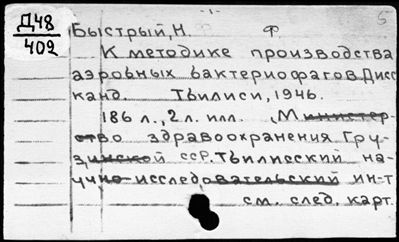 Д48
402
Быстрый, Н. Ф.
К методике производства
аэровных бактериофагов. Дисс
канд. Тбилиси, 1946.
186 л., 2 л. илл. Министер-
ство здравоохранения Гру-
зинской ССР. Тбилисский на-
учно-исследовательский ин-т
см. след. карт.